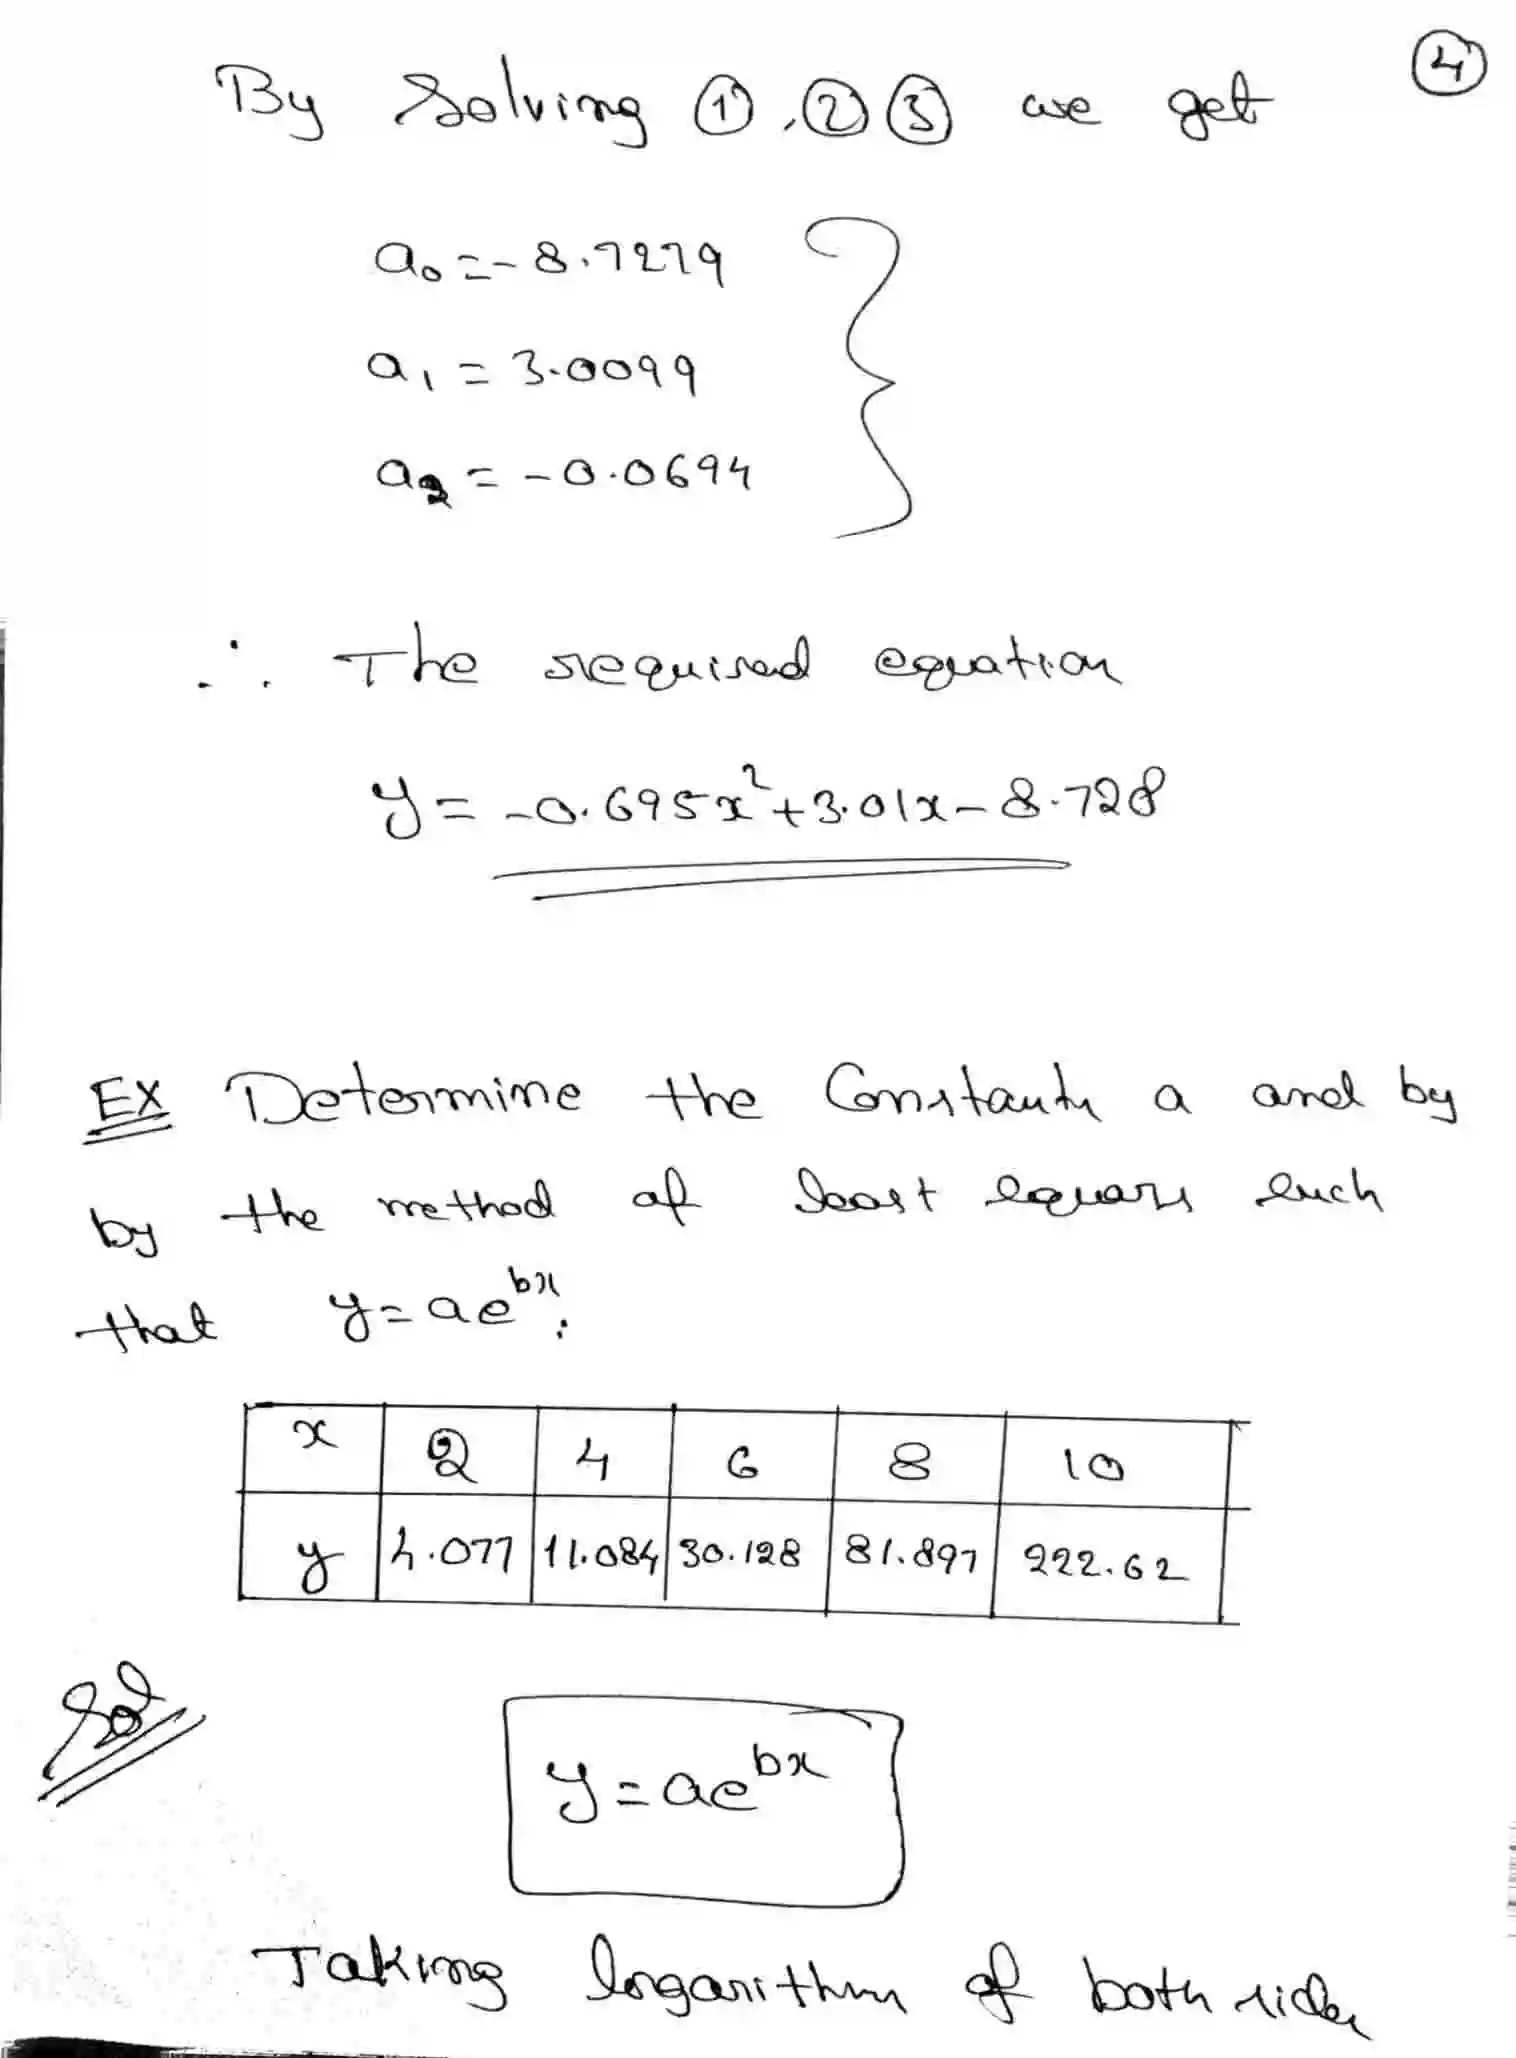 4
By Solving ①, ② ③ we get
a₀ = -8.7279
a₁ = 3.0099
a₂ = -0.0694
∴ The required equation
y = -0.695x² + 3.01x - 8.728
EX Determine the Constants a and by
by the method of least squars such
that y = ae^bx:
x 2 4 6 8 10
y 4.077 11.084 30.128 81.897 222.62
Sol
y = ae^bx
Taking logarithm of both sides